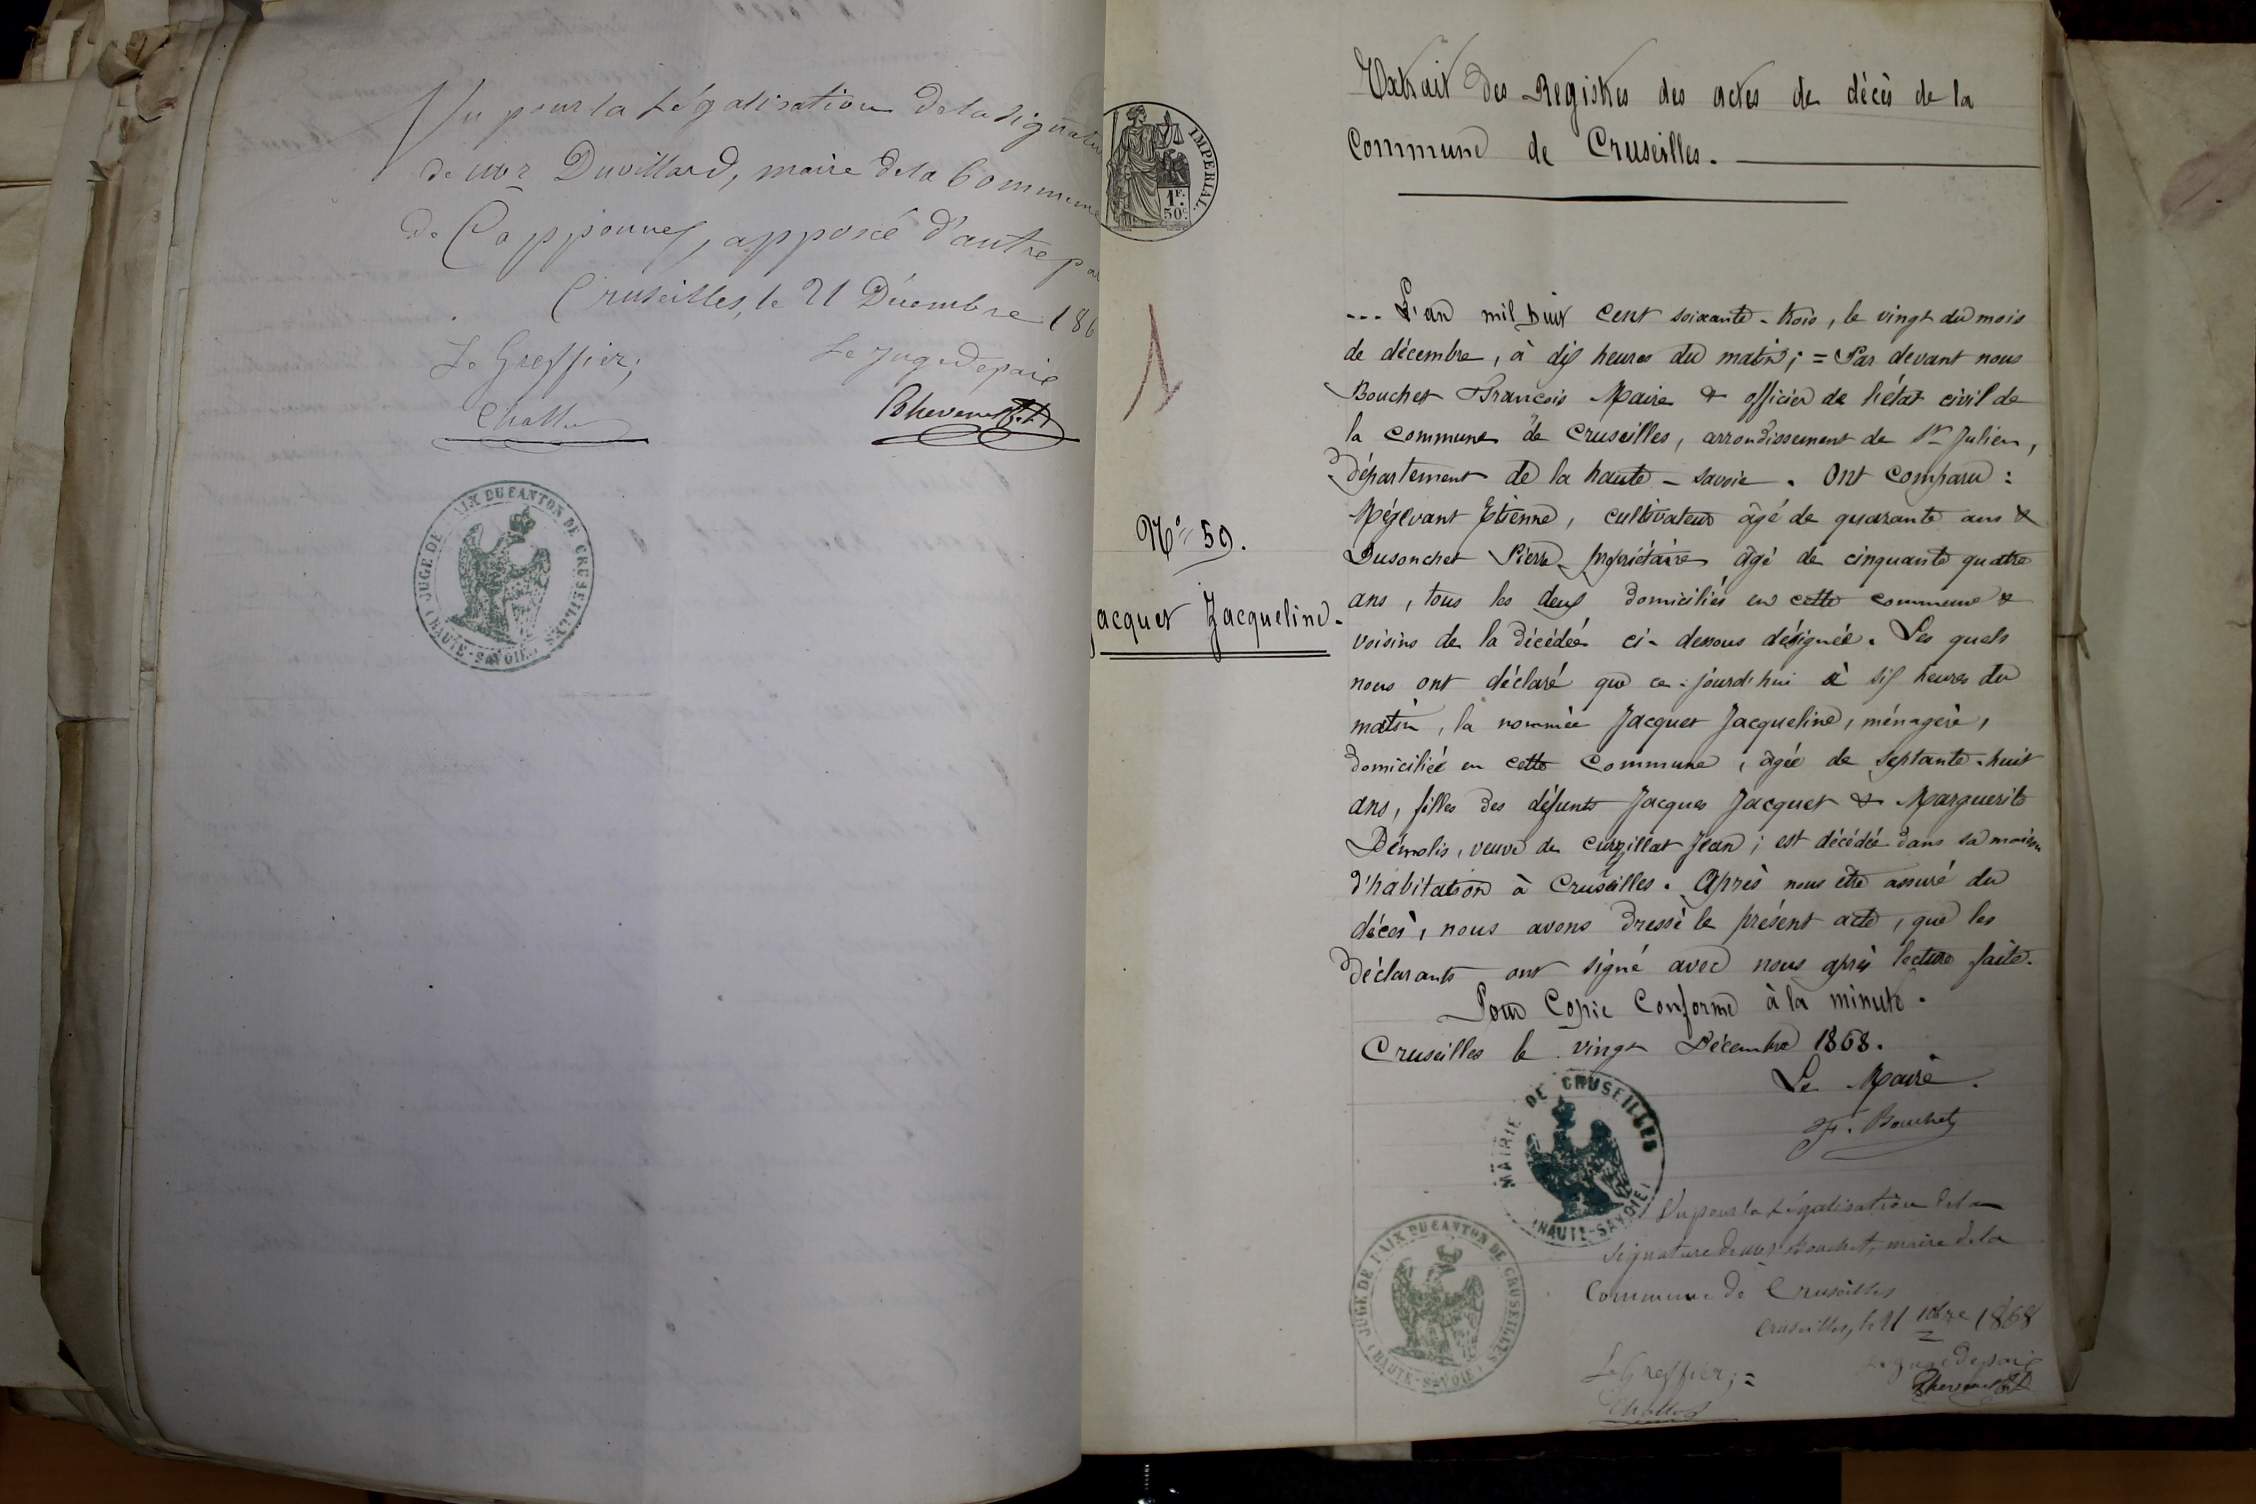 Vu pour la Légalisation de la signatu
de Mr Duvillard, maire de la Commune
de Copponnex, apposé d'autre pa
Cruseilles, le 21 Décembre 186
Le Greffier;
Le Juge de paix
JUGE DE PAIX DU CANTON DE CRUSEILLES
(HAUTE-SAVOIE)
IMPERIAL.
1F.
50c
Extrait des Registres des actes de décès de la
Commune de Cruseilles.
N° 59.
Jacquet Jacqueline.
--- L'an mil huit cent soixante-trois, le vingt du mois
de décembre, à dix heures du matin; = Par devant nous
Bouchet François Maire & officier de l'état civil de
la commune de Cruseilles, arrondissement de St Julien,
département de la haute-savoie. Ont comparu:
Mégevant Etienne, cultivateur âgé de quarante ans &
Dusonchet Pierre propriétaire âgé de cinquante quatre
ans, tous les deux domiciliés en cette commune &
voisins de la décédée ci-dessous désignée. Les quels
nous ont déclaré que ce-jourd'hui à six heures du
matin, la nommée Jacquet Jacqueline, ménagère,
domiciliée en cette commune, âgée de septante-huit
ans, filles des défunts Jacques Jacquet & Marguerite
Démolis, veuve de Jean; est décédée dans sa maison
d'habitation à Cruseilles. Après nous être assuré du
décès, nous avons dressé le présent acte, que les
déclarants ont signé avec nous après lecture faite.
Pour Copie Conforme à la minute.
Cruseilles le vingt Décembre 1868.
Le Maire.
F. Bouchet
MAIRIE DE CRUSEILLES
(HAUTE-SAVOIE)
Vu pour la Légalisation de la
signature de Mr Bouchet, maire de la
Commune de Cruseilles
Cruseilles, le 21 10bre 1868
Le Greffier; =
Le Juge de paix
JUGE DE PAIX DU CANTON DE CRUSEILLES
(HAUTE-SAVOIE)